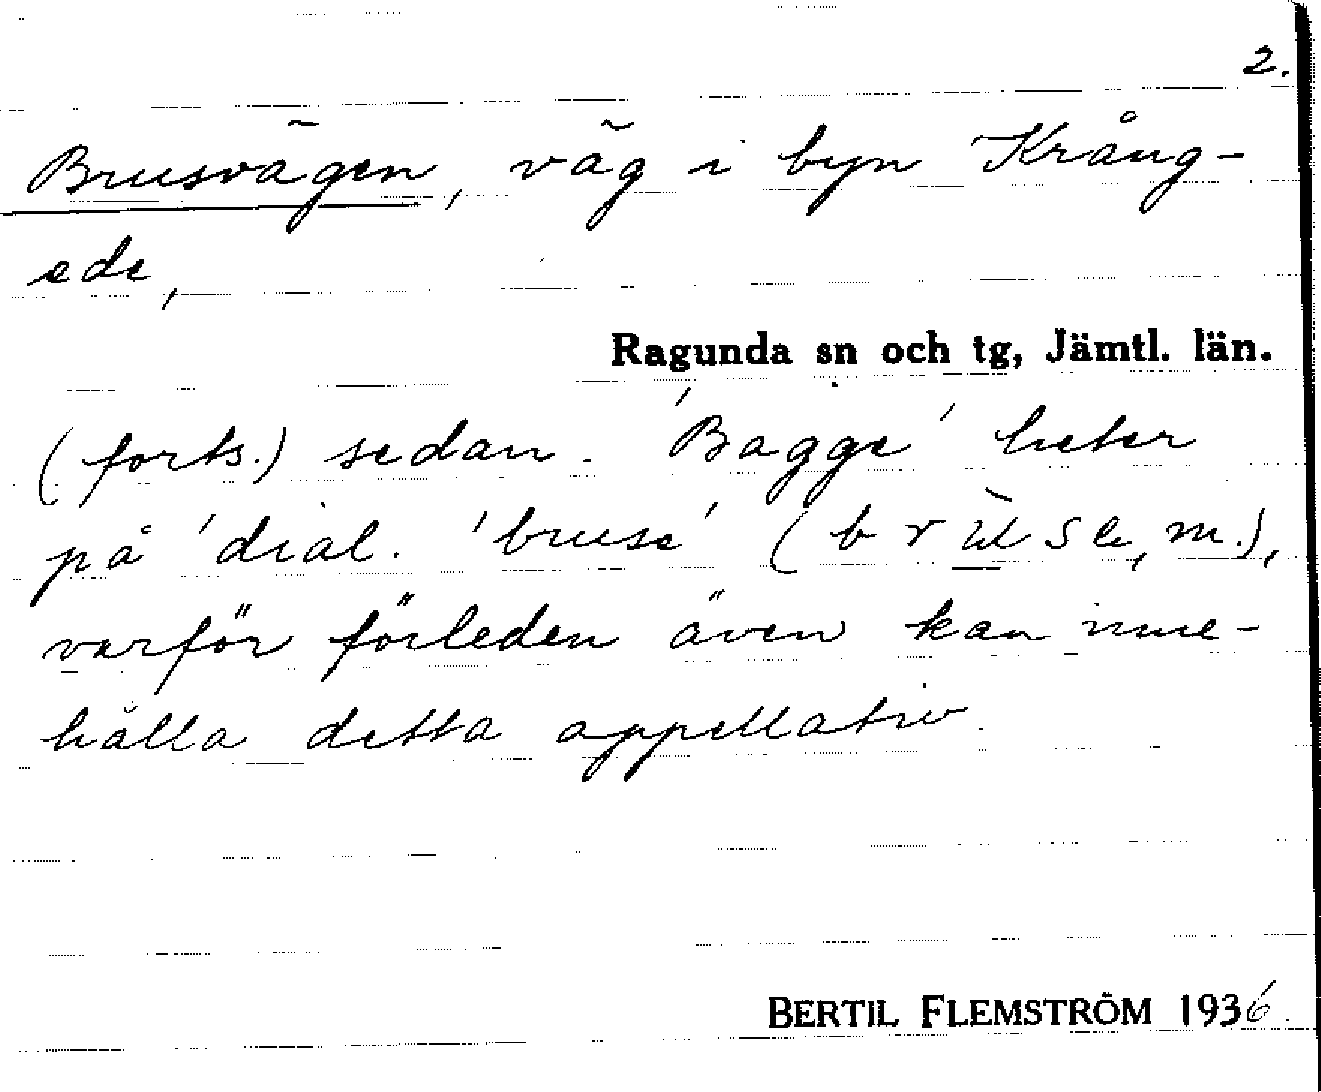 2.
Brusvägen, väg i byn Krång-
ede,
Ragunda sn och tg, Jämtl. län.
(forts.) sedan. 'Bagge' heter
på dial. 'bruse' (m.),
varför förleden även kan inne-
hålla detta appellativ.
BERTIL FLEMSTRÖM 1936.